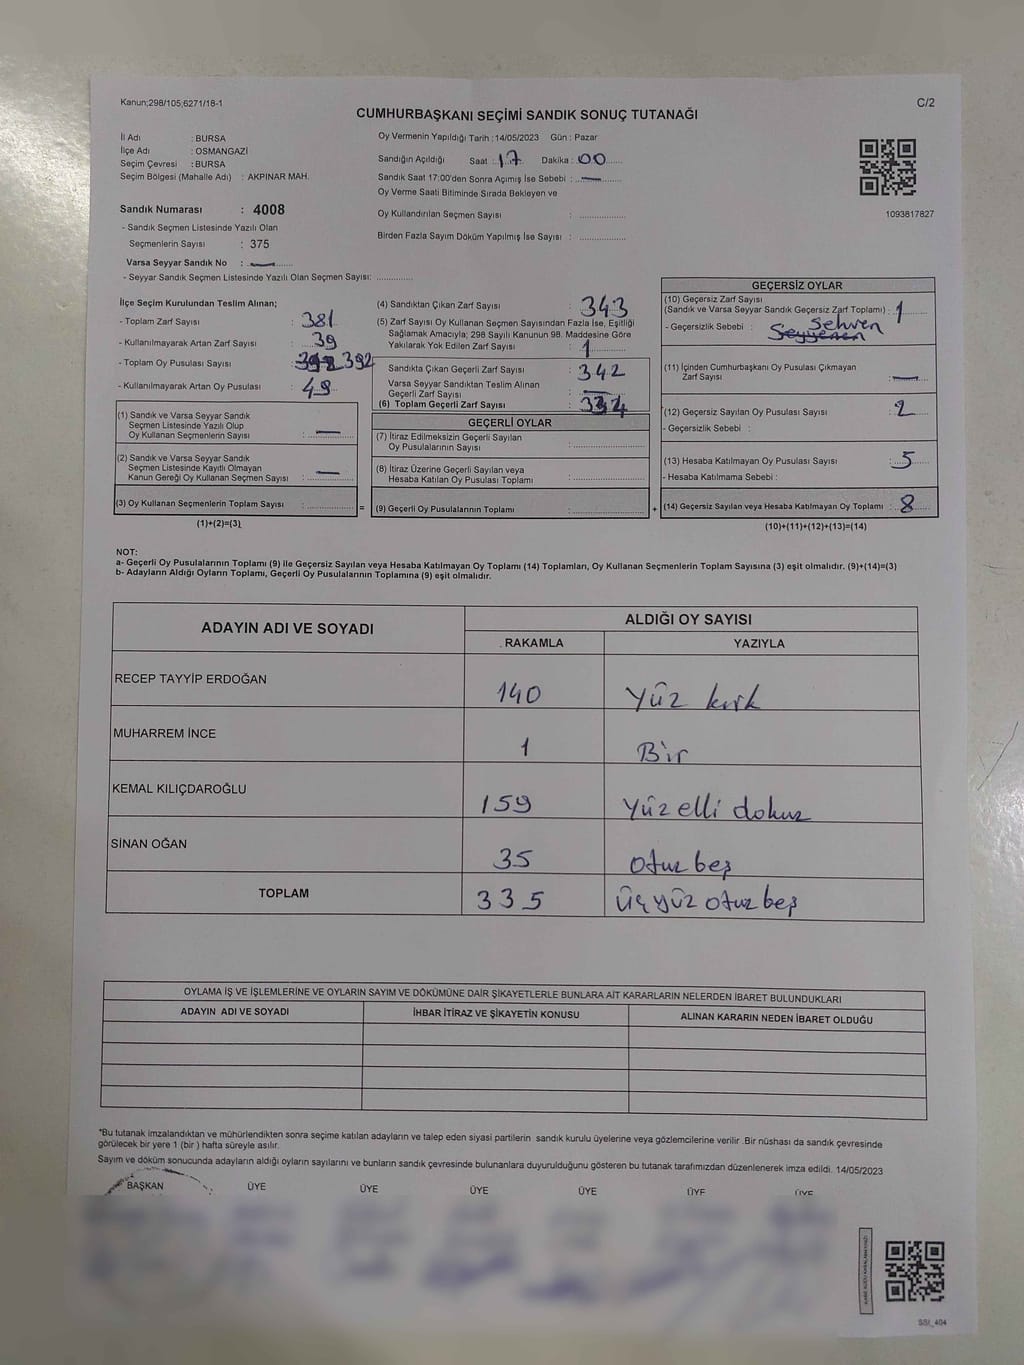 Kanun;298/105;6271/18-1
C/2
CUMHURBAŞKANI SEÇİMİ SANDIK SONUÇ TUTANAĞI
İl Adı : BURSA
İlçe Adı : OSMANGAZİ
Seçim Çevresi : BURSA
Seçim Bölgesi (Mahalle Adı) : AKPINAR MAH.
Sandık Numarası : 4008
- Sandık Seçmen Listesinde Yazılı Olan
Seçmenlerin Sayısı : 375
Varsa Seyyar Sandık No : —
- Seyyar Sandık Seçmen Listesinde Yazılı Olan Seçmen Sayısı: ............
Oy Vermenin Yapıldığı Tarih : 14/05/2023 Gün : Pazar
Sandığın Açıldığı Saat : 17 Dakika : 00
Sandık Saat 17:00'den Sonra Açımış İse Sebebi : —
Oy Verme Saati Bitiminde Sırada Bekleyen ve
Oy Kullandırılan Seçmen Sayısı : ...............
Birden Fazla Sayım Döküm Yapılmış İse Sayısı : ...............
1093817827
İlçe Seçim Kurulundan Teslim Alınan;
- Toplam Zarf Sayısı : 381
- Kullanılmayarak Artan Zarf Sayısı : 39
- Toplam Oy Pusulası Sayısı : 392
- Kullanılmayarak Artan Oy Pusulası : 49
(1) Sandık ve Varsa Seyyar Sandık
Seçmen Listesinde Yazılı Olup
Oy Kullanan Seçmenlerin Sayısı : —
(2) Sandık ve Varsa Seyyar Sandık
Seçmen Listesinde Kayıtlı Olmayan
Kanun Gereği Oy Kullanan Seçmen Sayısı : —
(3) Oy Kullanan Seçmenlerin Toplam Sayısı : ............... =
(1)+(2)=(3)
(4) Sandıktan Çıkan Zarf Sayısı : 343
(5) Zarf Sayısı Oy Kullanan Seçmen Sayısından Fazla İse, Eşitliği
Sağlamak Amacıyla; 298 Sayılı Kanunun 98. Maddesine Göre
Yakılarak Yok Edilen Zarf Sayısı : 1
Sandıkta Çıkan Geçerli Zarf Sayısı : 342
Varsa Seyyar Sandıktan Teslim Alınan
Geçerli Zarf Sayısı : —
(6) Toplam Geçerli Zarf Sayısı :
GEÇERLİ OYLAR
(7) İtiraz Edilmeksizin Geçerli Sayılan
Oy Pusulalarının Sayısı : ...............
(8) İtiraz Üzerine Geçerli Sayılan veya
Hesaba Katılan Oy Pusulası Toplamı : ...............
(9) Geçerli Oy Pusulalarının Toplamı : ............... +
GEÇERSİZ OYLAR
(10) Geçersiz Zarf Sayısı
(Sandık ve Varsa Seyyar Sandık Geçersiz Zarf Toplamı) : 1
- Geçersizlik Sebebi : Sehven
(11) İçinden Cumhurbaşkanı Oy Pusulası Çıkmayan
Zarf Sayısı : —
(12) Geçersiz Sayılan Oy Pusulası Sayısı : 2
- Geçersizlik Sebebi :
(13) Hesaba Katılmayan Oy Pusulası Sayısı : 5
- Hesaba Katılmama Sebebi :
(14) Geçersiz Sayılan veya Hesaba Katılmayan Oy Toplamı : 8
(10)+(11)+(12)+(13)=(14)
NOT:
a- Geçerli Oy Pusulalarının Toplamı (9) ile Geçersiz Sayılan veya Hesaba Katılmayan Oy Toplamı (14) Toplamları, Oy Kullanan Seçmenlerin Toplam Sayısına (3) eşit olmalıdır. (9)+(14)=(3)
b- Adayların Aldığı Oyların Toplamı, Geçerli Oy Pusulalarının Toplamına (9) eşit olmalıdır.
ADAYIN ADI VE SOYADI ALDIĞI OY SAYISI
RAKAMLA YAZIYLA
RECEP TAYYİP ERDOĞAN 140 Yüz kırk
MUHARREM İNCE 1 Bir
KEMAL KILIÇDAROĞLU 159 Yüz elli dokuz
SİNAN OĞAN 35 Otuz beş
TOPLAM 335 Üçyüz otuz beş
OYLAMA İŞ VE İŞLEMLERİNE VE OYLARIN SAYIM VE DÖKÜMÜNE DAİR ŞİKAYETLERLE BUNLARA AİT KARARLARIN NELERDEN İBARET BULUNDUKLARI
ADAYIN ADI VE SOYADI İHBAR İTİRAZ VE ŞİKAYETİN KONUSU ALINAN KARARIN NEDEN İBARET OLDUĞU
*Bu tutanak imzalandıktan ve mühürlendikten sonra seçime katılan adayların ve talep eden siyasi partilerin sandık kurulu üyelerine veya gözlemcilerine verilir .Bir nüshası da sandık çevresinde
görülecek bir yere 1 (bir ) hafta süreyle asılır.
Sayım ve döküm sonucunda adayların aldığı oyların sayılarını ve bunların sandık çevresinde bulunanlara duyurulduğunu gösteren bu tutanak tarafımızdan düzenlenerek imza edildi. 14/05/2023
BAŞKAN ÜYE ÜYE ÜYE ÜYE ÜYE ÜYE
SSI_404